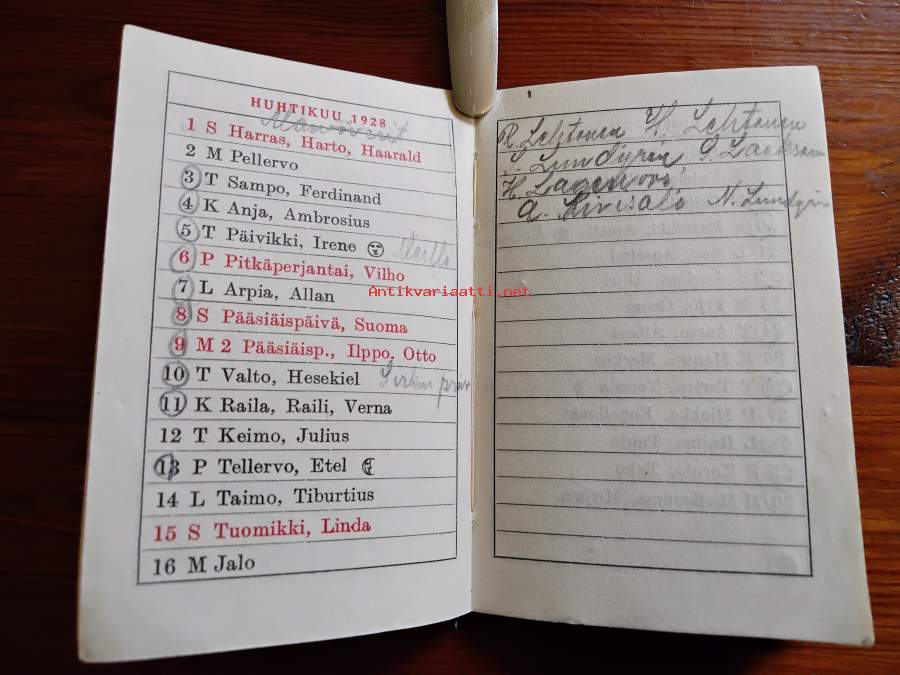 HUHTIKUU 1928
1 S Harras, Harto, Haarald
2 M Pellervo
3 T Sampo, Ferdinand
4 K Anja, Ambrosius
5 T Päivikki, Irene
6 P Pitkäperjantai, Vilho
7 L Arpia, Allan
8 S Pääsiäispäivä, Suoma
9 M 2 Pääsiäisp., Ilppo, Otto
10 T Valto, Hesekiel
11 K Raila, Raili, Verna
12 T Keimo, Julius
13 P Tellervo, Etel
14 L Taimo, Tiburtius
15 S Tuomikki, Linda
16 M Jalo
R. Lehtonen H. Lehtonen
Lundqvin
A. Kivisalo N. Lundqvin
Antikvariaatti.net